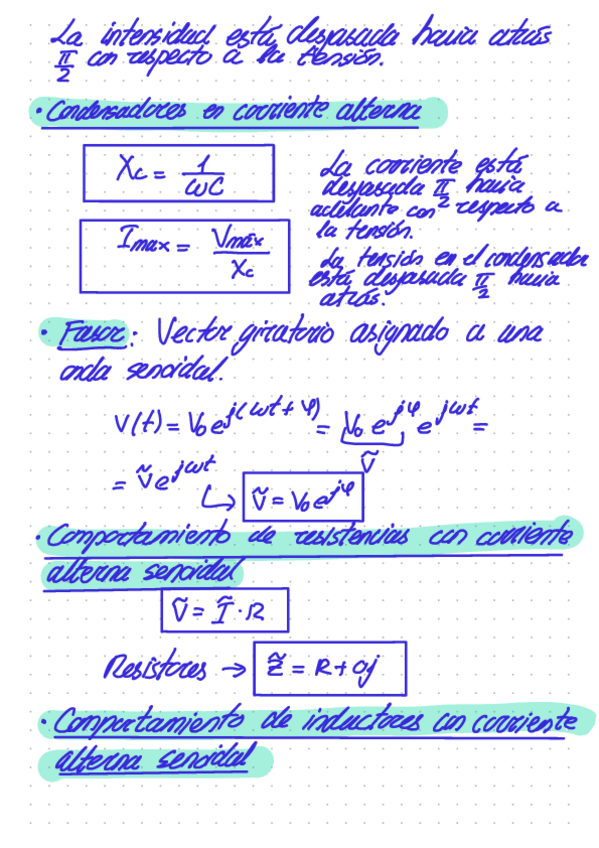 La intensidad está desfasada hacia atrás
π/2 con respecto a la tensión.
· Condensadores en corriente alterna
Xc = 1/ωC
Imax = Vmáx/Xc
La corriente está
desfasada π/2 hacia
adelante con respecto a
la tensión.
La tensión en el condensador
está desfasada π/2 hacia
atrás.
· Fasor: Vector giratorio asignado a una
onda senoidal.
V(t) = V₀e^j(ωt + φ) = V₀ e^jφ e^jωt =
Ṽ
= Ṽe^jωt ↳ Ṽ = V₀e^jφ
· Comportamiento de resistencias con corriente
alterna senoidal
Ṽ = Ĩ · R
Resistores → Z̃ = R + 0j
· Comportamiento de inductores con corriente
alterna senoidal